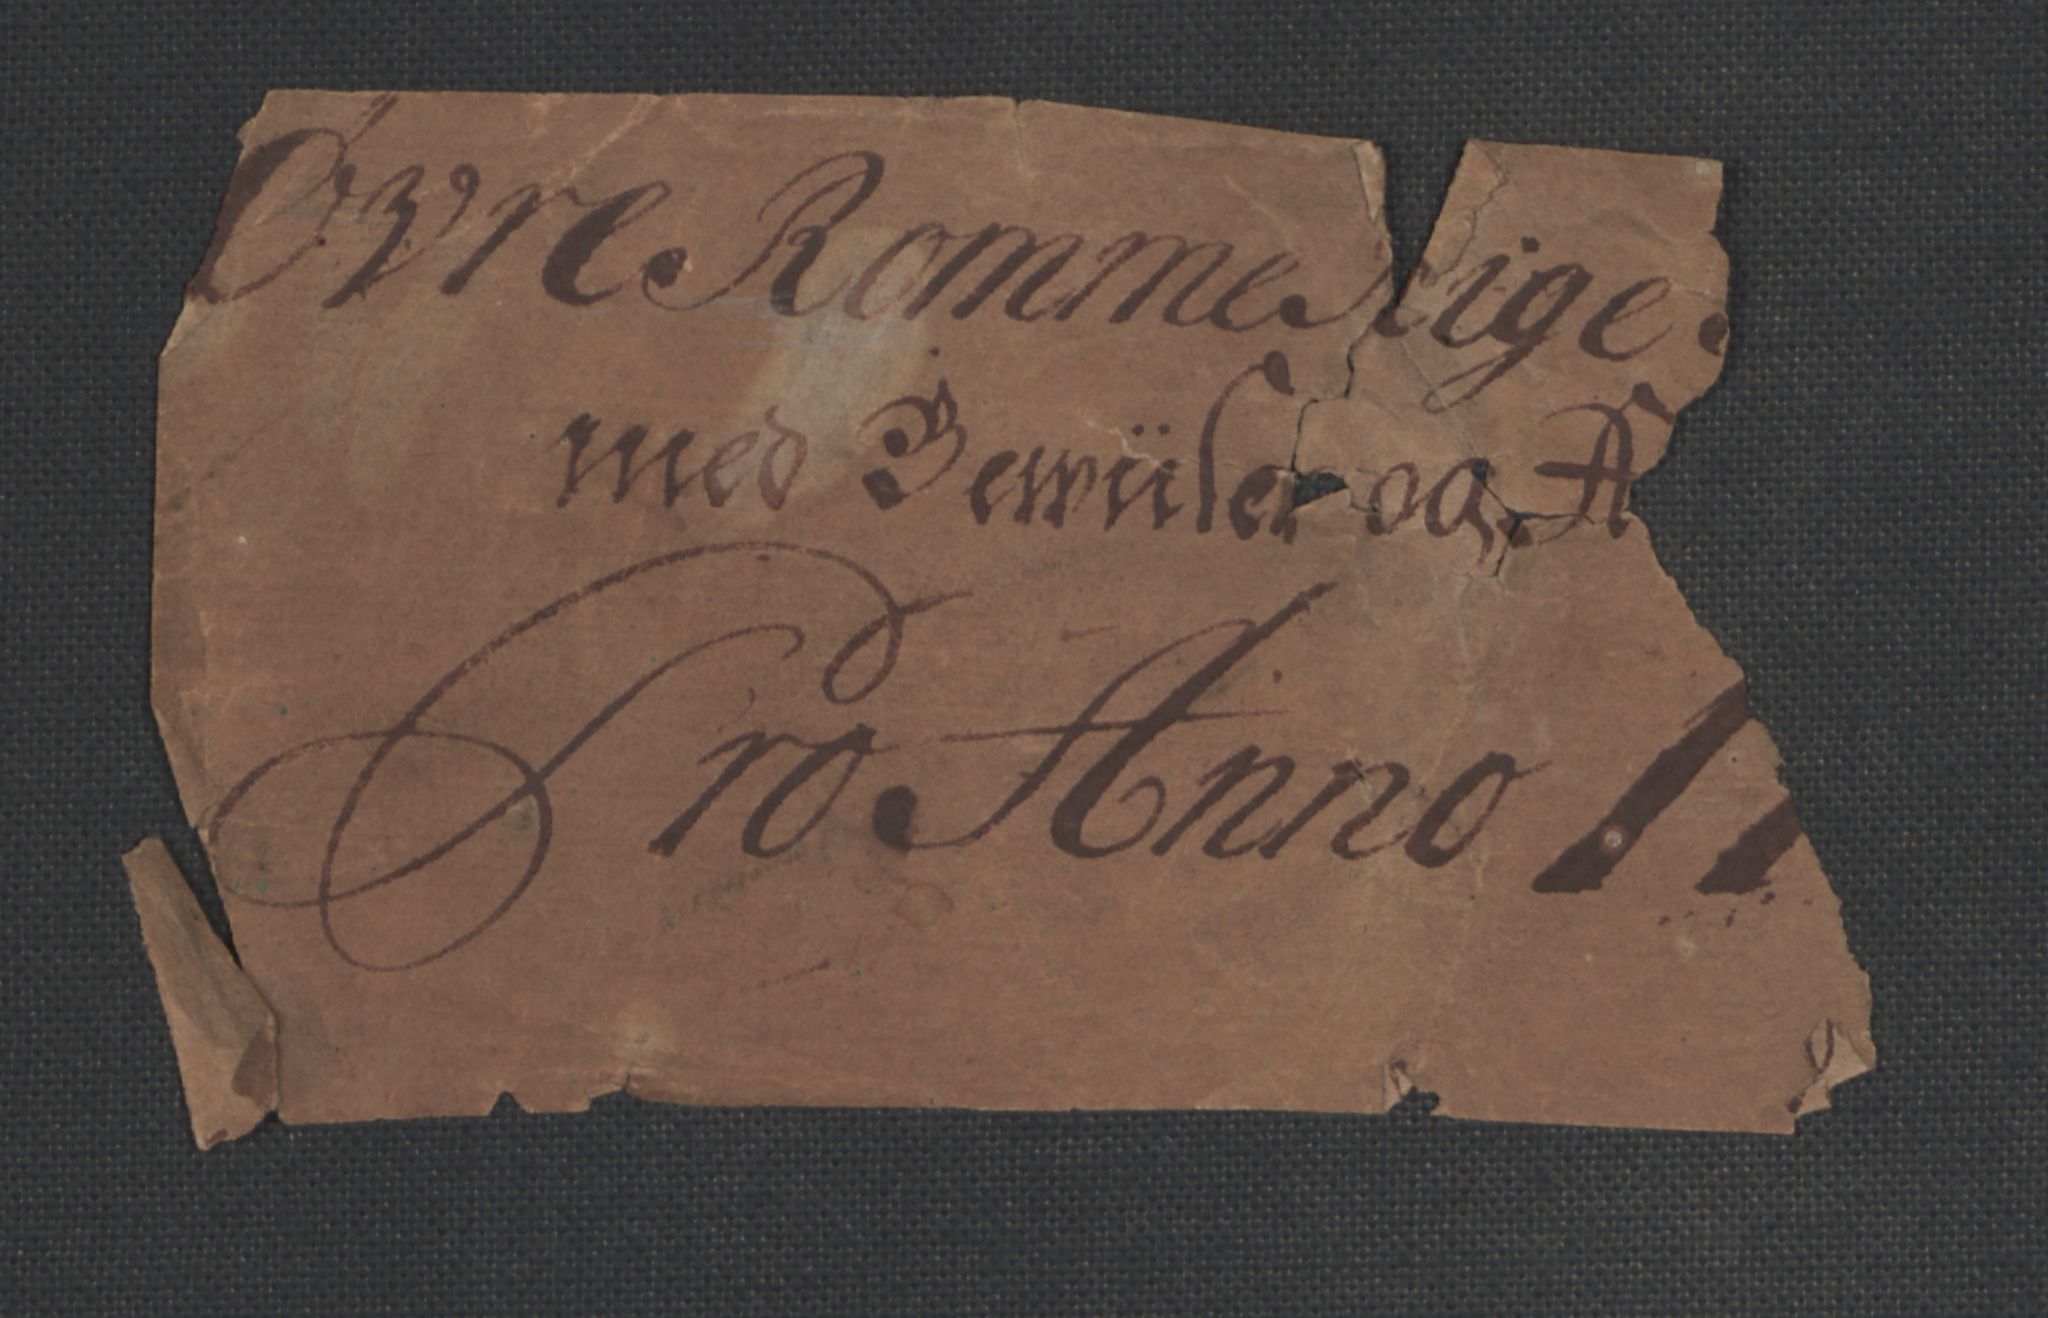 Øvre Rommerige.
med Bewiiser og A
Pro Anno 17